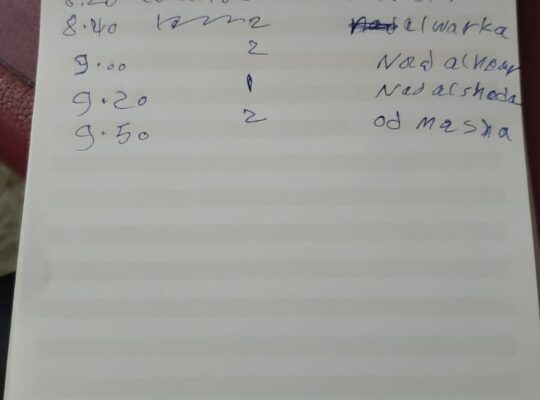 8.20
8.40 2 alwarka
9.00 2 Nad alhamr
9.20 1 Nad alsheda
9.50 2 od maska